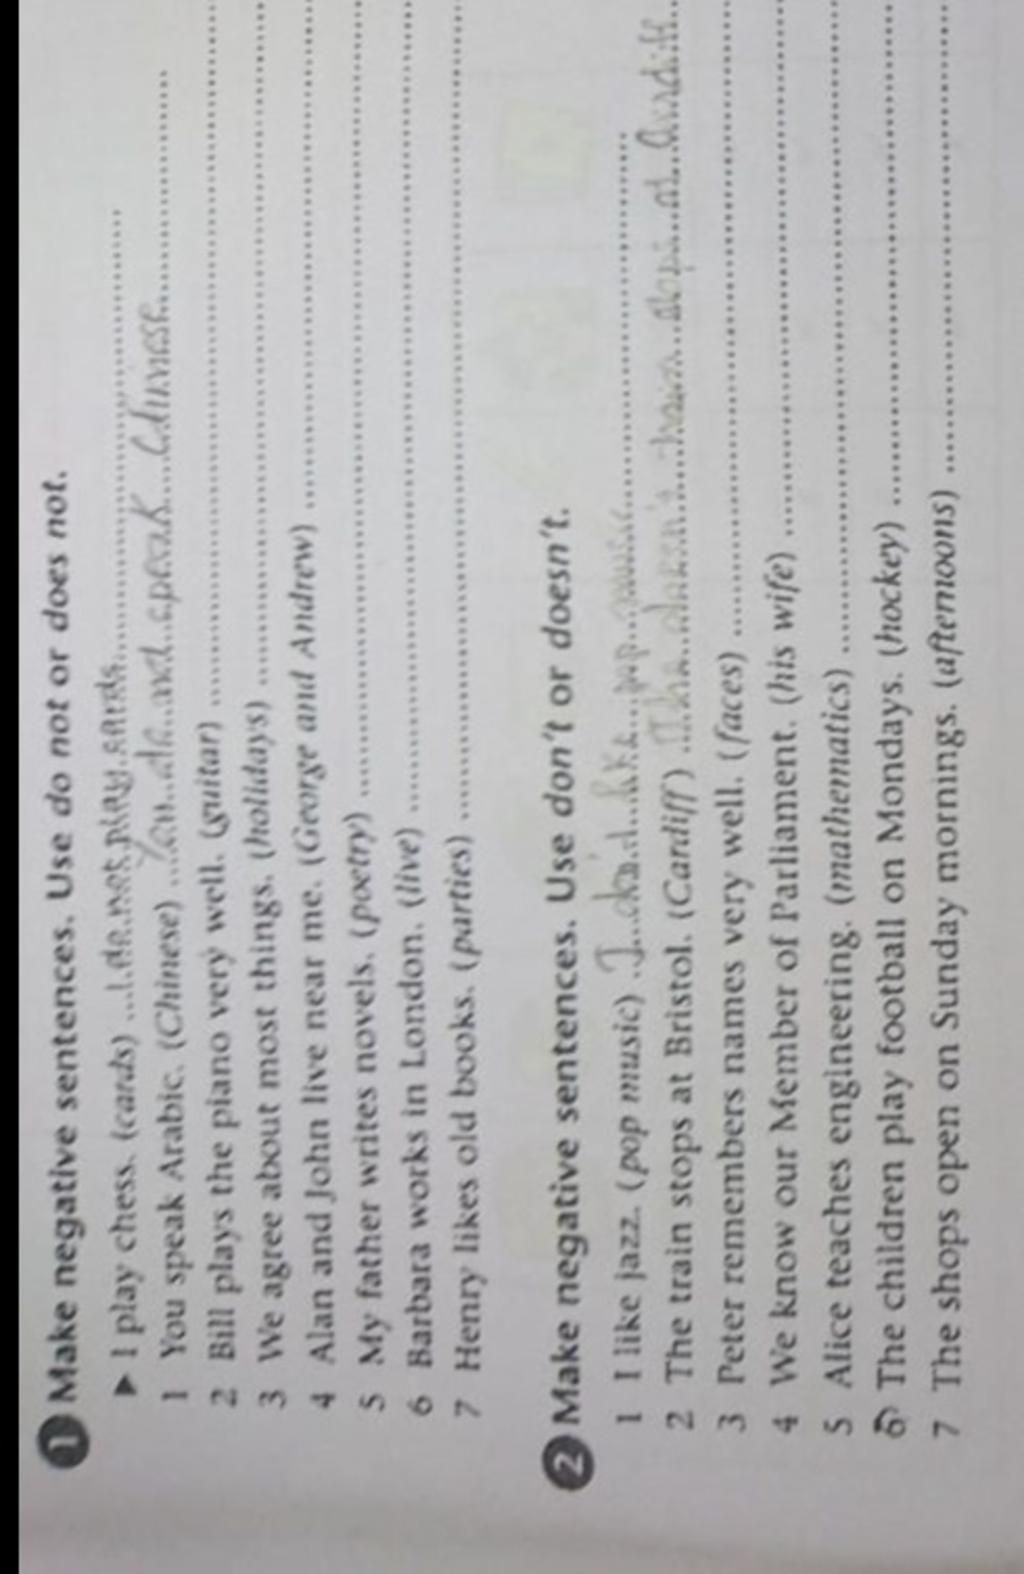 1 Make negative sentences. Use do not or does not.
▶ I play chess. (cards) ...I do not play cards.
1 You speak Arabic. (Chinese) ...You do not speak Chinese.
2 Bill plays the piano very well. (guitar)
3 We agree about most things. (holidays)
4 Alan and John live near me. (George and Andrew)
5 My father writes novels. (poetry)
6 Barbara works in London. (live)
7 Henry likes old books. (parties)
2 Make negative sentences. Use don't or doesn't.
1 I like jazz. (pop music) I don't like pop
2 The train stops at Bristol. (Cardiff) doesn't at Cardiff
3 Peter remembers names very well. (faces)
4 We know our Member of Parliament. (his wife)
5 Alice teaches engineering. (mathematics)
6 The children play football on Mondays. (hockey)
7 The shops open on Sunday mornings. (afternoons)